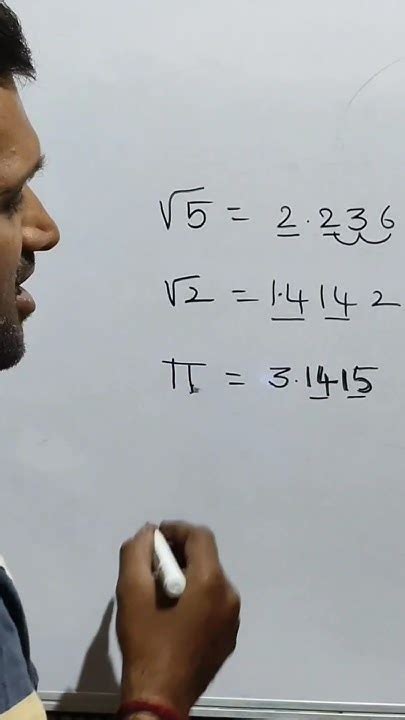 √5 = 2.236
√2 = 1.4142
π = 3.1415